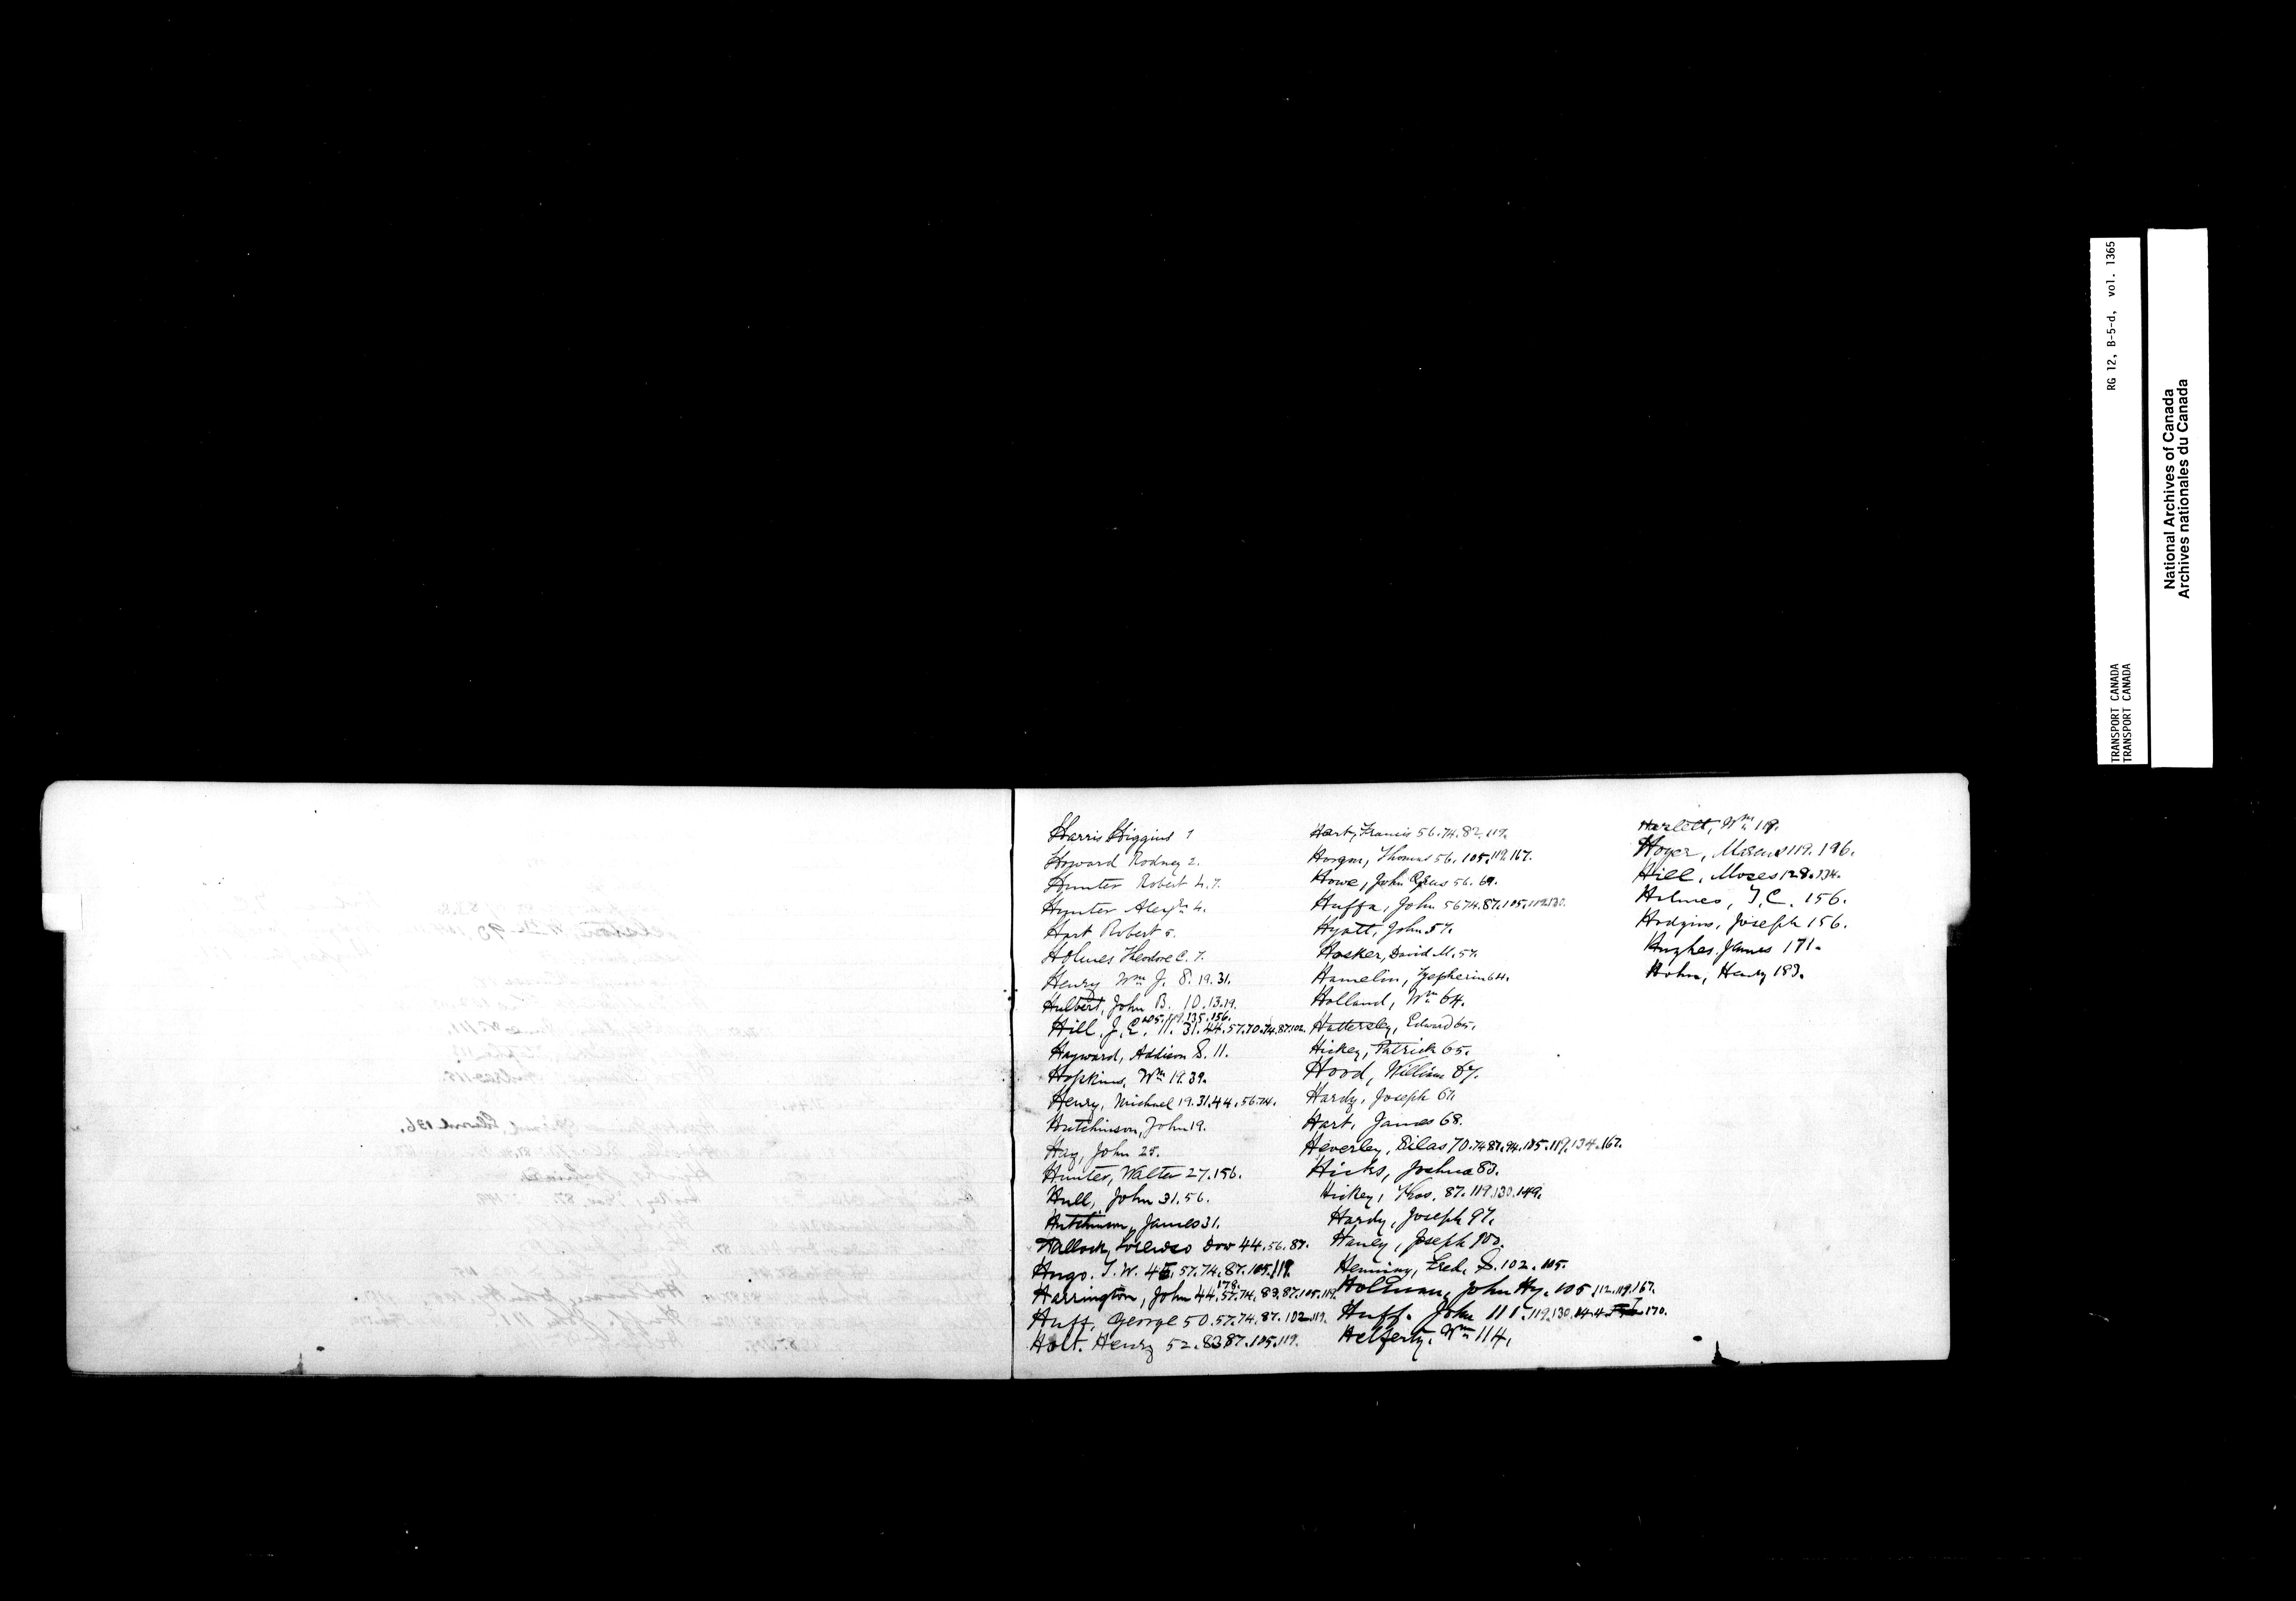 Harris Higgins 1
Howard Rodney 2.
Hunter Robert 4.7.
Hunter Alexr 4.
Hart Robert 5.
Holmes Theodore C. 7.
Henry Wm J. 8. 19. 31.
Hulbert, John B. 10. 13. 19.
105. 119. 135. 156.
Hill, J. C. 11. 31. 44. 57. 70. 74. 87. 102.
Hayward, Addison S. 11.
Hopkins, Wm 19. 39.
Henry, Michael 19. 31. 44. 56. 74.
Hutchinson, John 19.
Hay, John 25.
Hunter, Walter 27. 156.
Hull, John 31. 56.
Hutchinson, James 31.
Hallock, Lorenzo Dow 44. 56. 87.
Hugo. T. W. 45. 57. 74. 87. 105. 119.
178.
Harrington, John 44. 57. 74. 83. 87. 105. 119.
Huff, George 50. 57. 74. 87. 102. 119.
Holt. Henry 52. 83 87. 105. 119.
Hart, Francis 56. 74. 82. 119.
Horgan, Thomas 56. 105. 119. 167.
Howe, John 56. 69.
Huffa, John 56 74. 87. 105. 119. 130.
Hyatt, John 57.
Hosker, David M. 57.
Hamelin, Zepherin 64.
Holland, Wm 64.
Hattersley, Edward 65.
Hickey, Patrick 65.
Hood, William 67.
Hardy, Joseph 67.
Hart, James 68.
Heverley, Silas 70. 74 87. 94. 105. 119. 134. 167.
Hicks, Joshua 83.
Hickey, Thos. 87. 119. 130. 149.
Hardy, Joseph 97.
Hanley, Joseph 100.
Henning, Fred. S. 102. 105.
Holtman, John Hy. 105. 112. 119. 167.
Huff. John 111. 119. 130. 144. 170.
Helferty, Wm 114.
Hazlett, Wm 119.
Hoyer, 119. 196.
Hill, Moses 128. 134.
Holmes, T. C. 156.
Hodgins, Joseph 156.
Hughes, James 171.
Hohn, Henry 183.
RG 12, B-5-d, vol. 1365
TRANSPORT CANADA
TRANSPORT CANADA
National Archives of Canada
Archives nationales du Canada